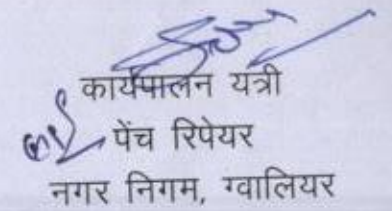 कार्यपालन यत्री
पेंच रिपेयर
नगर निगम, ग्वालियर